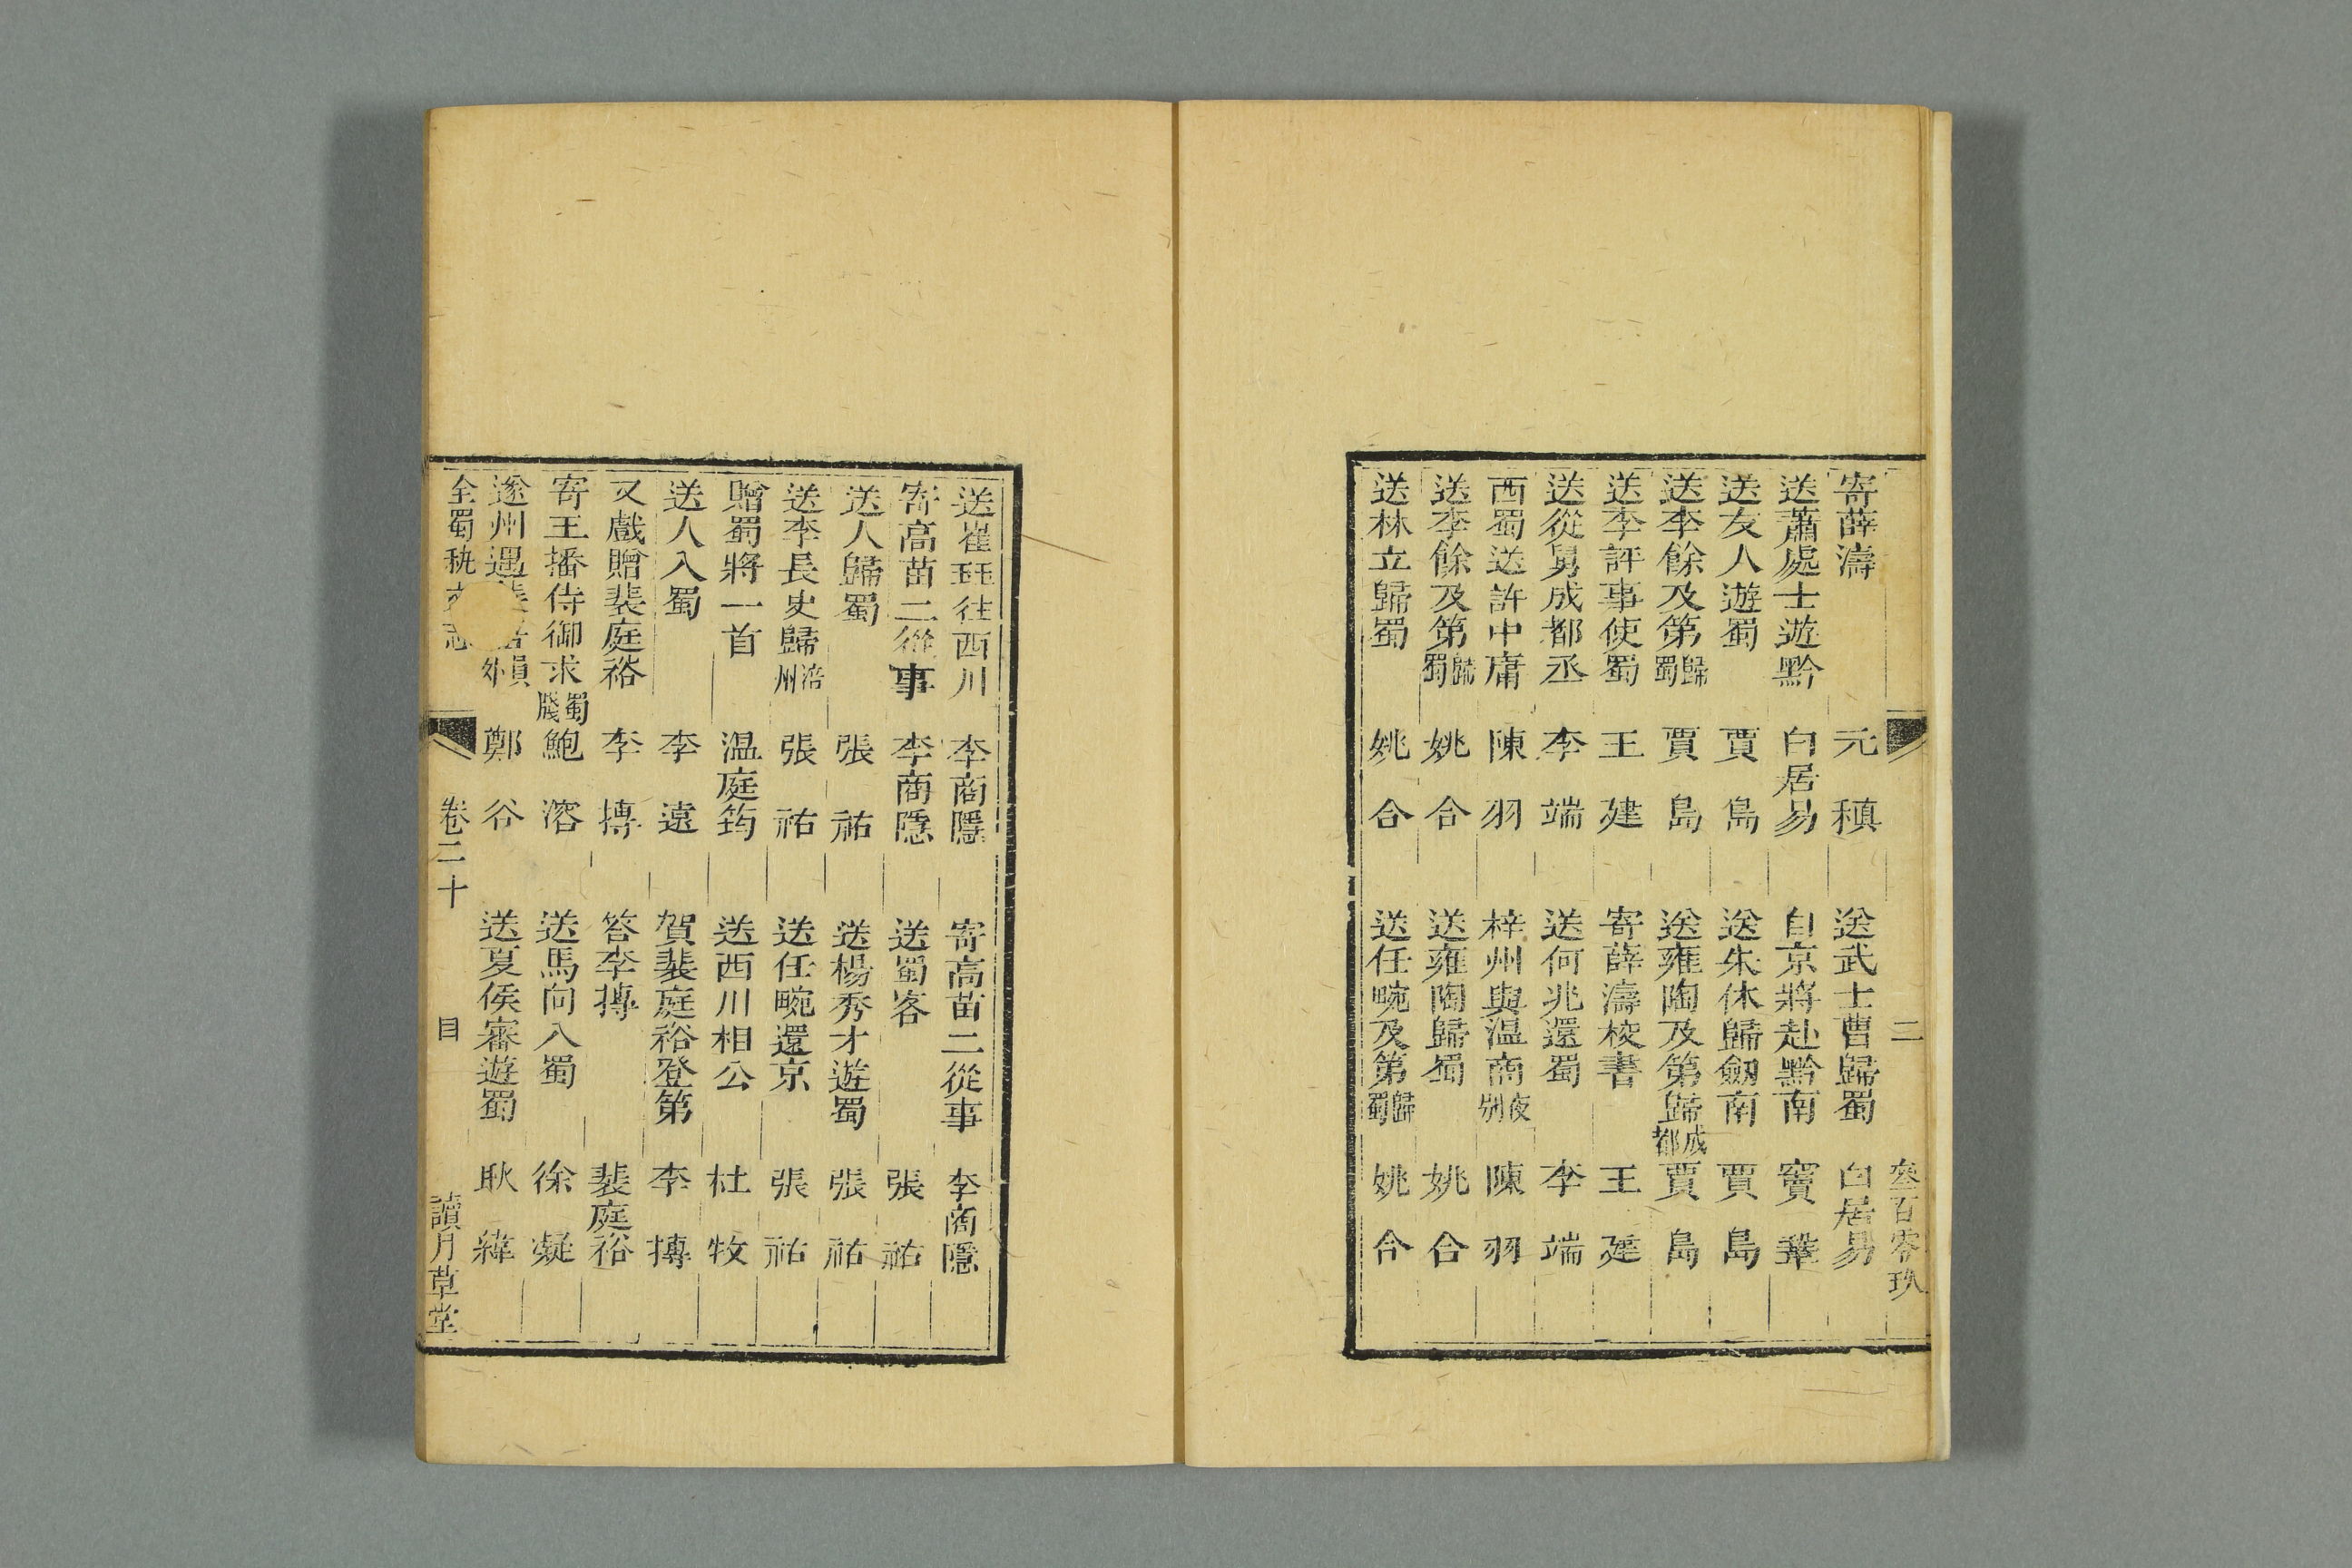 二 叄百零玖
寄薛濤 元稹 送武士曹歸蜀 白居易
送蕭處士遊黔 白居易 自京將赴黔南 竇鞏
送友人遊蜀 賈島 送朱休歸劒南 賈島
送李餘及第歸蜀 賈島 送雍陶及第歸成都 賈島
送李評事使蜀 王建 寄薛濤校書 王建
送從舅成都丞 李端 送何兆還蜀 李端
西蜀送許中庸 陳羽 梓州與温商夜别 陳羽
送李餘及第歸蜀 姚合 送雍陶歸蜀 姚合
送林立歸蜀 姚合 送任畹及第歸蜀 姚合
送崔珏往西川 李商隱 寄高苗二從事 李商隱
寄高苗二從事 李商隱 送蜀客 張祜
送人歸蜀 張祜 送楊秀才遊蜀 張祜
送李長史歸涪州 張祜 送任畹還京 張祜
贈蜀將一首 温庭筠 送西川相公 杜牧
送人入蜀 李遠 賀裴庭裕登第 李摶
又戲贈裴庭裕 李摶 答李摶 裴庭裕
寄王播侍御求蜀牋 鮑溶 送馬向入蜀 徐凝
遂州遇 員外 鄭谷 送夏侯審遊蜀 耿緯
全蜀秇 志 卷二十 目 讀月草堂